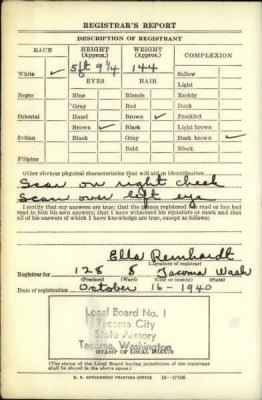 REGISTRAR'S REPORT
DESCRIPTION OF REGISTRANT
RACE HEIGHT (Approx.) WEIGHT (Approx.) COMPLEXION
White ✓ 5 ft 9 1/4 144 Sallow
EYES HAIR Light
Negro Blue Blonde Ruddy
Gray Red Dark
Oriental Hazel Brown ✓ Freckled
Brown ✓ Black Light brown
Indian Black Gray Dark brown ✓
Bald Black
Filipino
Other obvious physical characteristics that will aid in identification
Scar on right cheek
Scar over left eye
I certify that my answers are true; that the person registered has read or has had
read to him his own answers; that I have witnessed his signature or mark and that
all of his answers of which I have knowledge are true, except as follows:
Ella Reinhardt
(Signature of registrar)
Registrar for 128 8 Tacoma Wash
(Precinct) (Ward) (City or county) (State)
Date of registration October 16 - 1940
Local Board No. 1
Tacoma City
State Armory
Tacoma, Washington
STAMP OF LOCAL BOARD
(The stamp of the Local Board having jurisdiction of the registrant
shall be placed in the above space.)
U. S. GOVERNMENT PRINTING OFFICE 16—17105